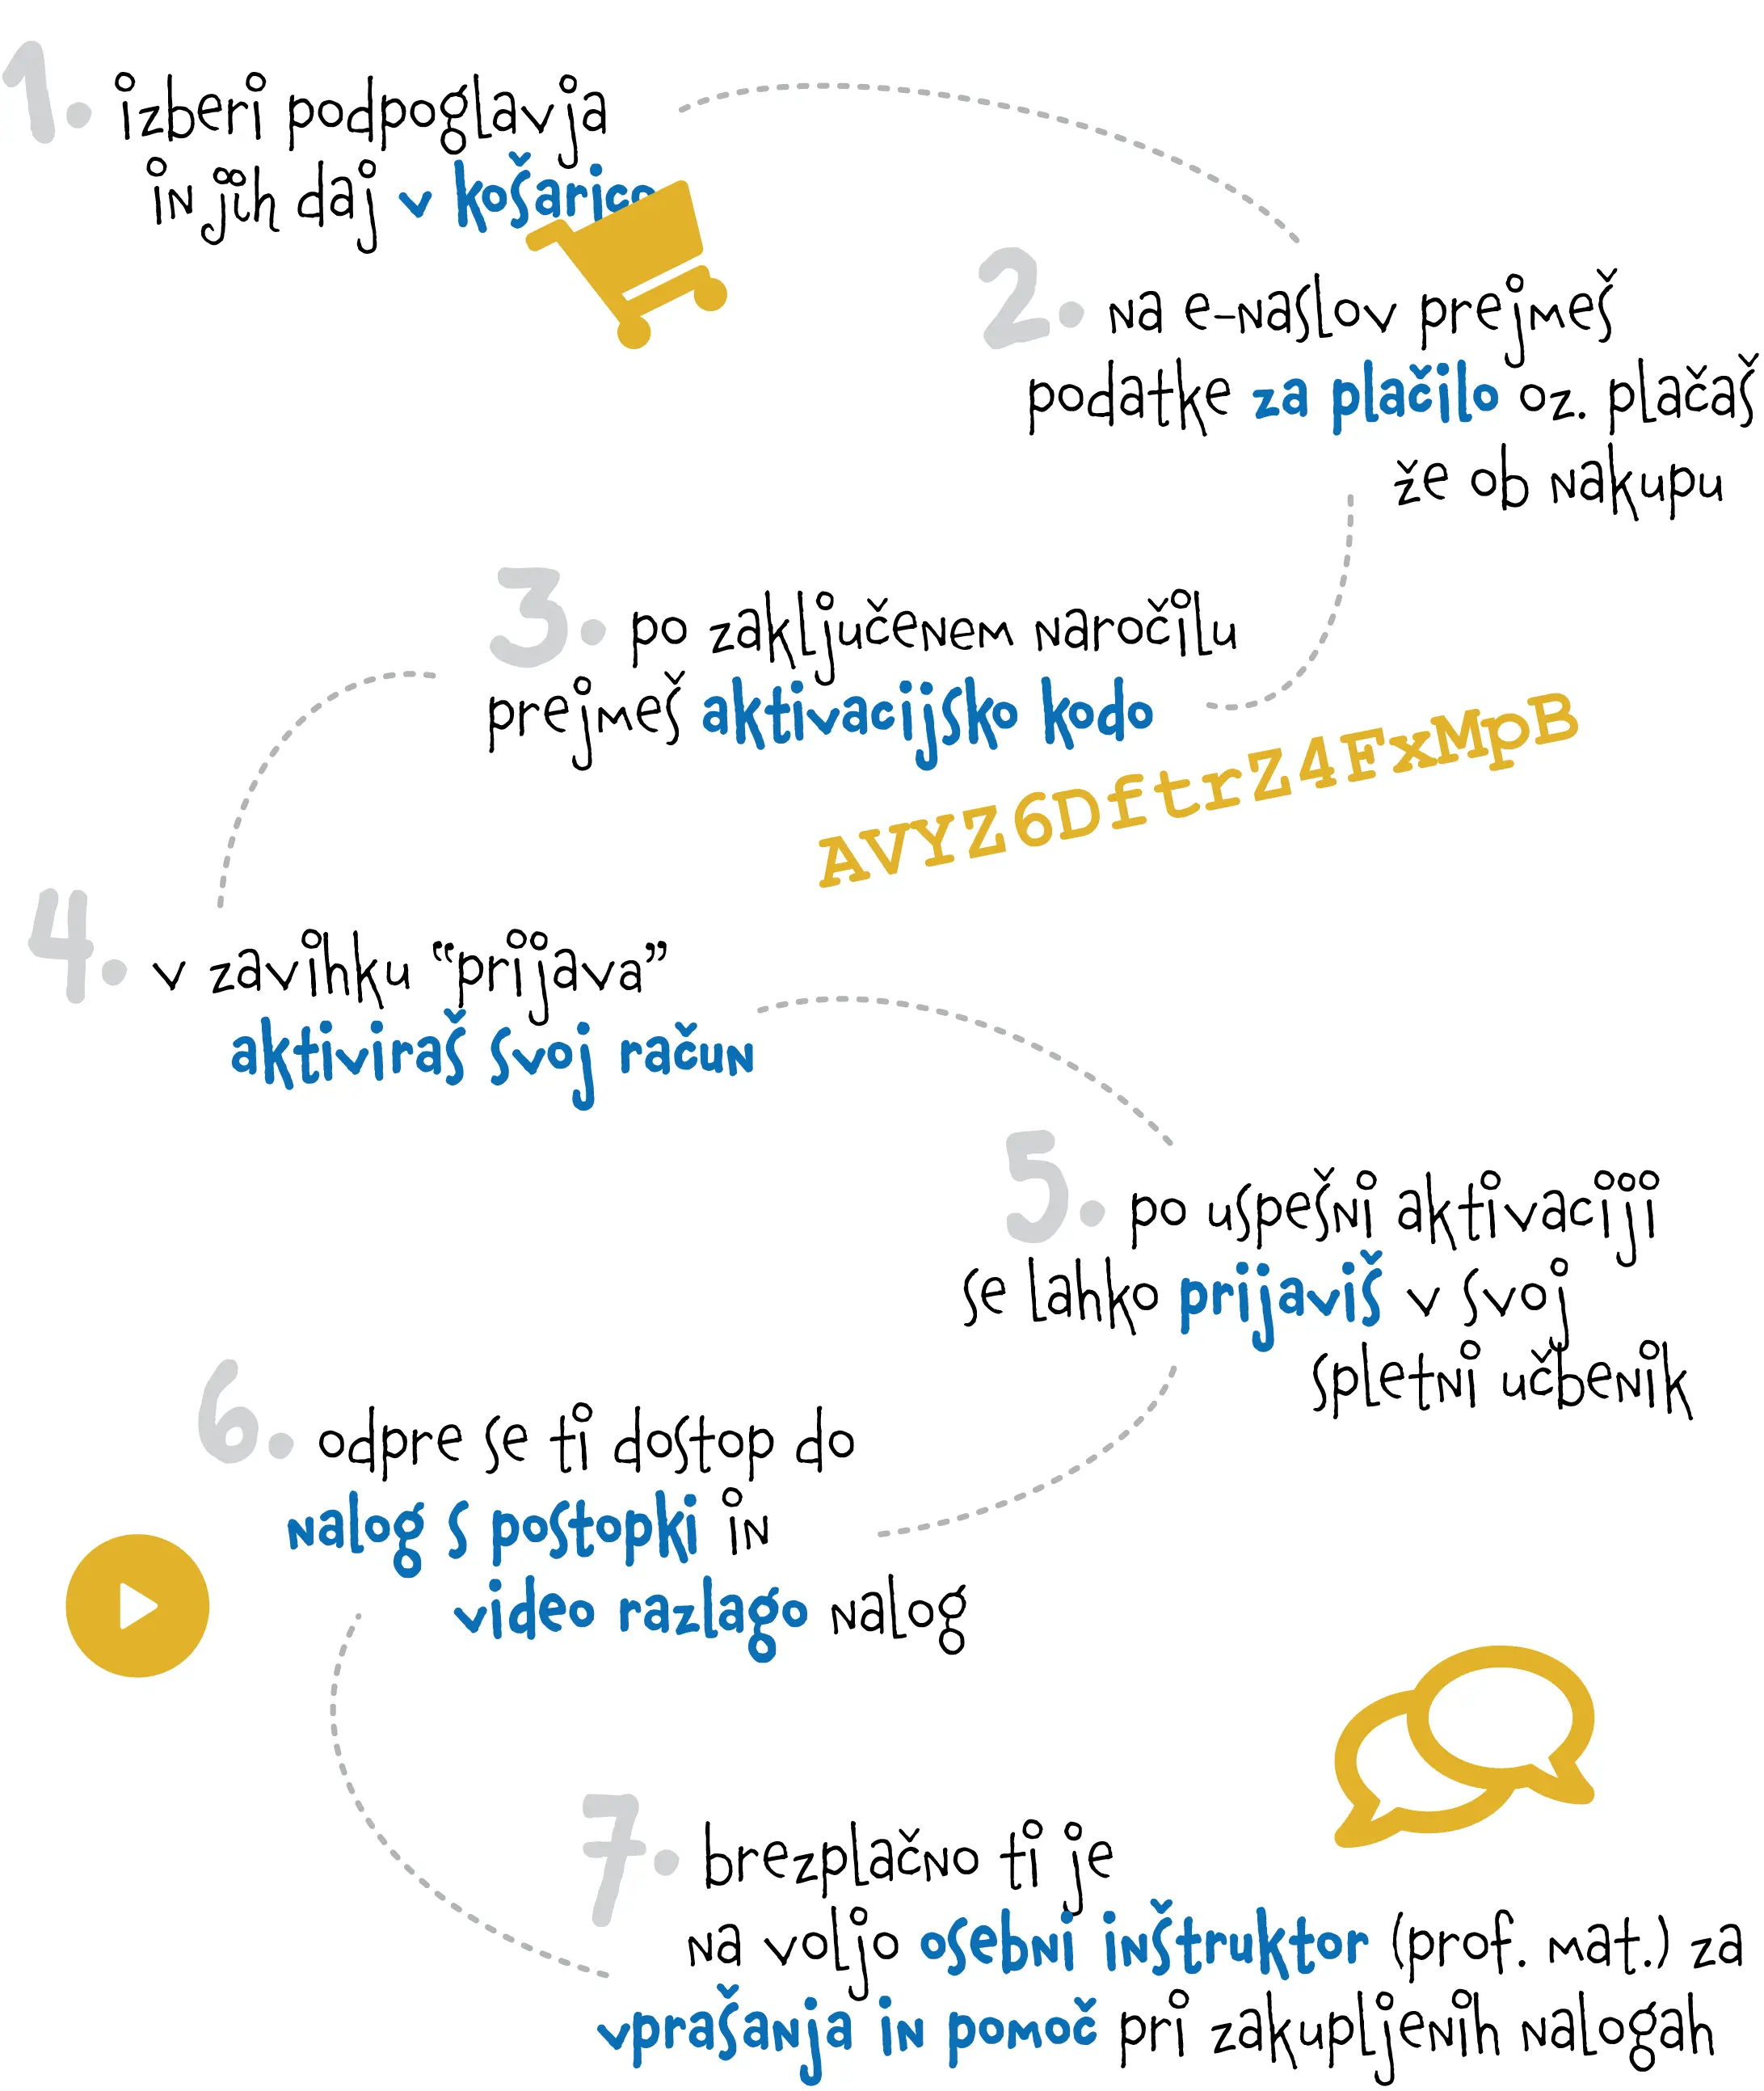 1. izberi podpoglavja
in jih daj v košarico
2. na e-naslov prejmeš
podatke za plačilo oz. plačaš
že ob nakupu
3. po zaključenem naročilu
prejmeš aktivacijsko kodo
AVYZ6DftrZ4FxMpB
4. v zavihku “prijava”
aktiviraš svoj račun
5. po uspešni aktivaciji
se lahko prijaviš v svoj
spletni učbenik
6. odpre se ti dostop do
nalog s postopki in
video razlago nalog
7. brezplačno ti je
na voljo osebni inštruktor (prof. mat.) za
vprašanja in pomoč pri zakupljenih nalogah